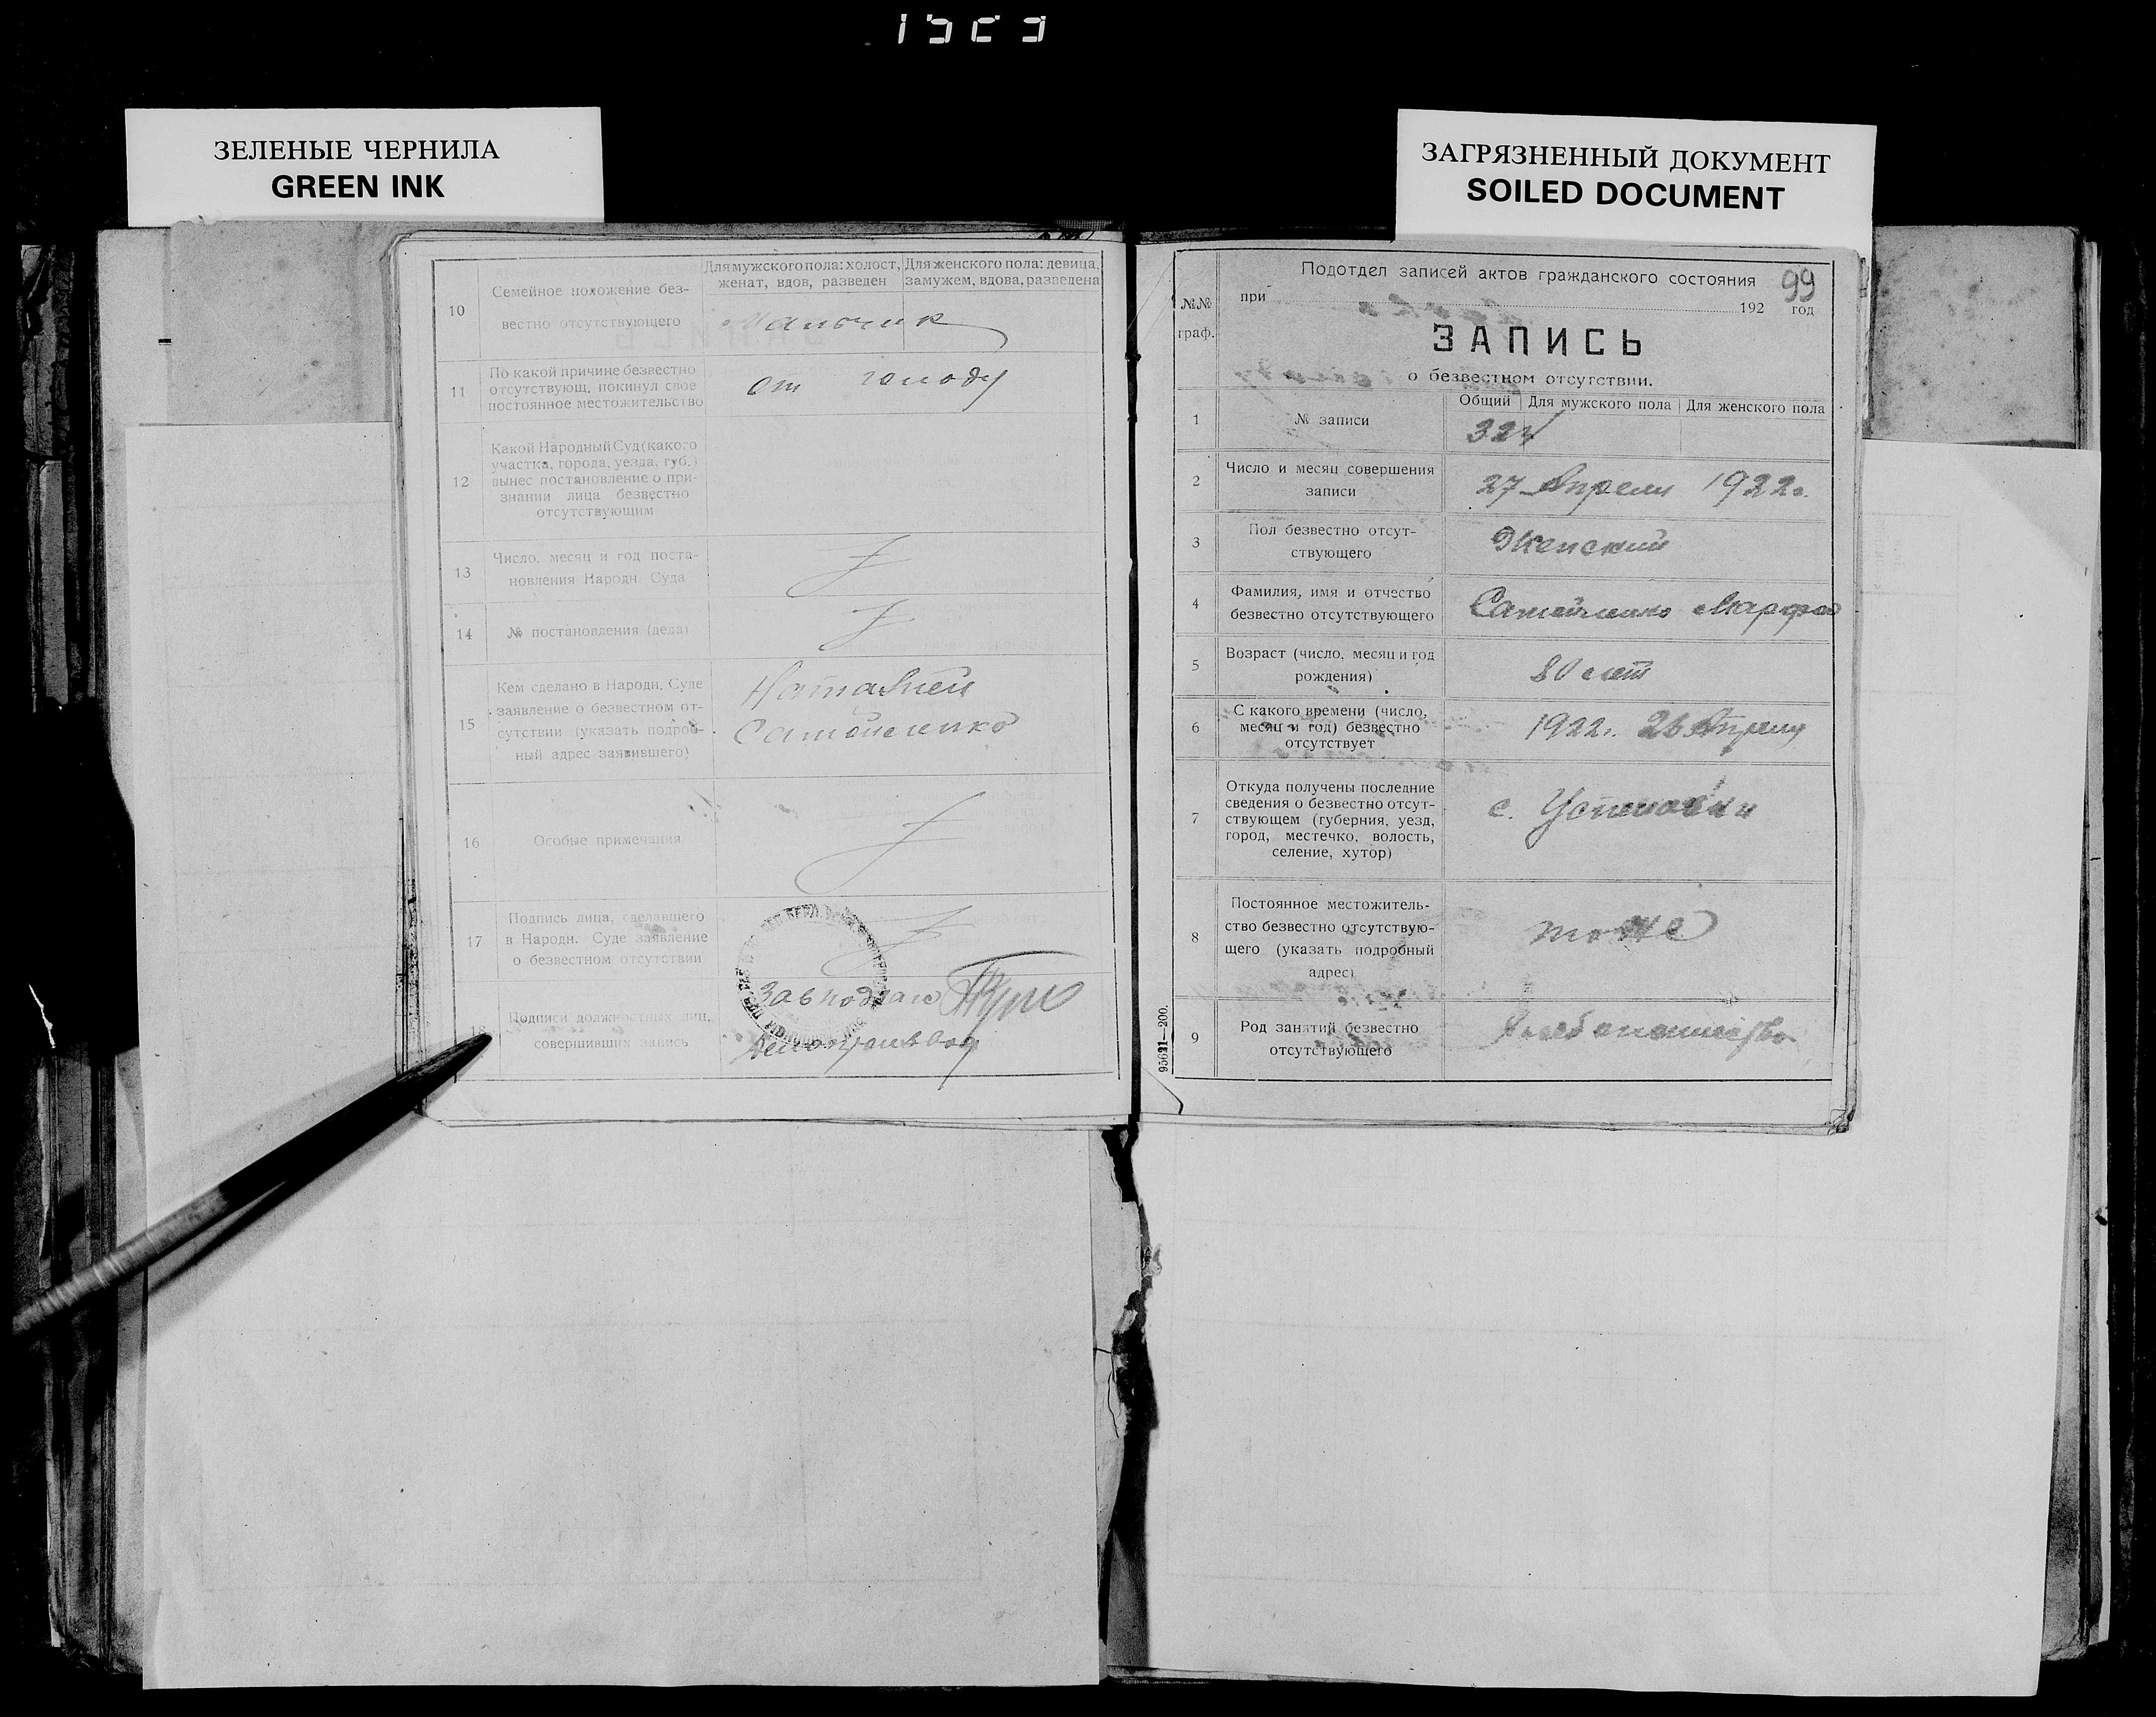 ЗЕЛЕНЫЕ ЧЕРНИЛА
GREEN INK
ЗАГРЯЗНЕННЫЙ ДОКУМЕНТ
SOILED DOCUMENT
10
Семейное положение без-
вестно отсутствующего
Для мужского пола: холост,
женат, вдов, разведен
Для женского пола: девица,
замужем, вдова, разведена
Мальчик
11
По какой причине безвестно
отсутствующ. покинул свое
постоянное местожительство
от голоду
12
Какой Народный Суд (какого
участка, города, уезда, губ.)
вынес постановление о при-
знании лица безвестно
отсутствующим
13
Число, месяц и год поста-
новления Народн. Суда
14
№ постановления (дела)
15
Кем сделано в Народн. Суде
заявление о безвестном от-
сутствии (указать подроб-
ный адрес заявившего)
Наталией
16
Особые примечания
17
Подпись лица, сделавшего
в Народн. Суде заявление
о безвестном отсутствии
18
Подписи должностных лиц,
совершивших запись
Делопроизвод
99
№№
граф.
Подотдел записей актов гражданского состояния
при 192 год
ЗАПИСЬ
о безвестном отсутствии.
1
№ записи
Общий Для мужского пола Для женского пола
2
Число и месяц совершения
записи
27 Апреля 1922 г.
3
Пол безвестно отсут-
ствующего
Женский
4
Фамилия, имя и отчество
безвестно отсутствующего
Марфа
5
Возраст (число, месяц и год
рождения)
80 лет
6
С какого времени (число,
месяц и год) безвестно
отсутствует
1922 г. 26 Апреля
7
Откуда получены последние
сведения о безвестно отсут-
ствующем (губерния, уезд,
город, местечко, волость,
селение, хутор)
с.
8
Постоянное местожитель-
ство безвестно отсутствую-
щего (указать подробный
адрес)
тоже
9
Род занятий безвестно
отсутствующего
Хлебопашество